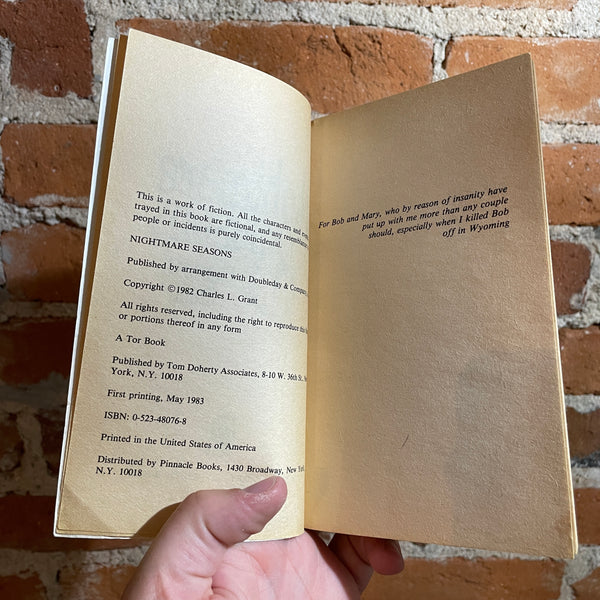 This is a work of fiction. All the characters and
trayed in this book are fictional, and any resemblance
people or incidents is purely coincidental.
NIGHTMARE SEASONS
Published by arrangement with Doubleday & Company
Copyright ©1982 Charles L. Grant
All rights reserved, including the right to reproduce this
or portions thereof in any form
A Tor Book
Published by Tom Doherty Associates, 8-10 W. 36th St.,
York, N.Y. 10018
First printing, May 1983
ISBN: 0-523-48076-8
Printed in the United States of America
Distributed by Pinnacle Books, 1430 Broadway, New
N.Y. 10018
For Bob and Mary, who by reason of insanity have
put up with me more than any couple
should, especially when I killed Bob
off in Wyoming